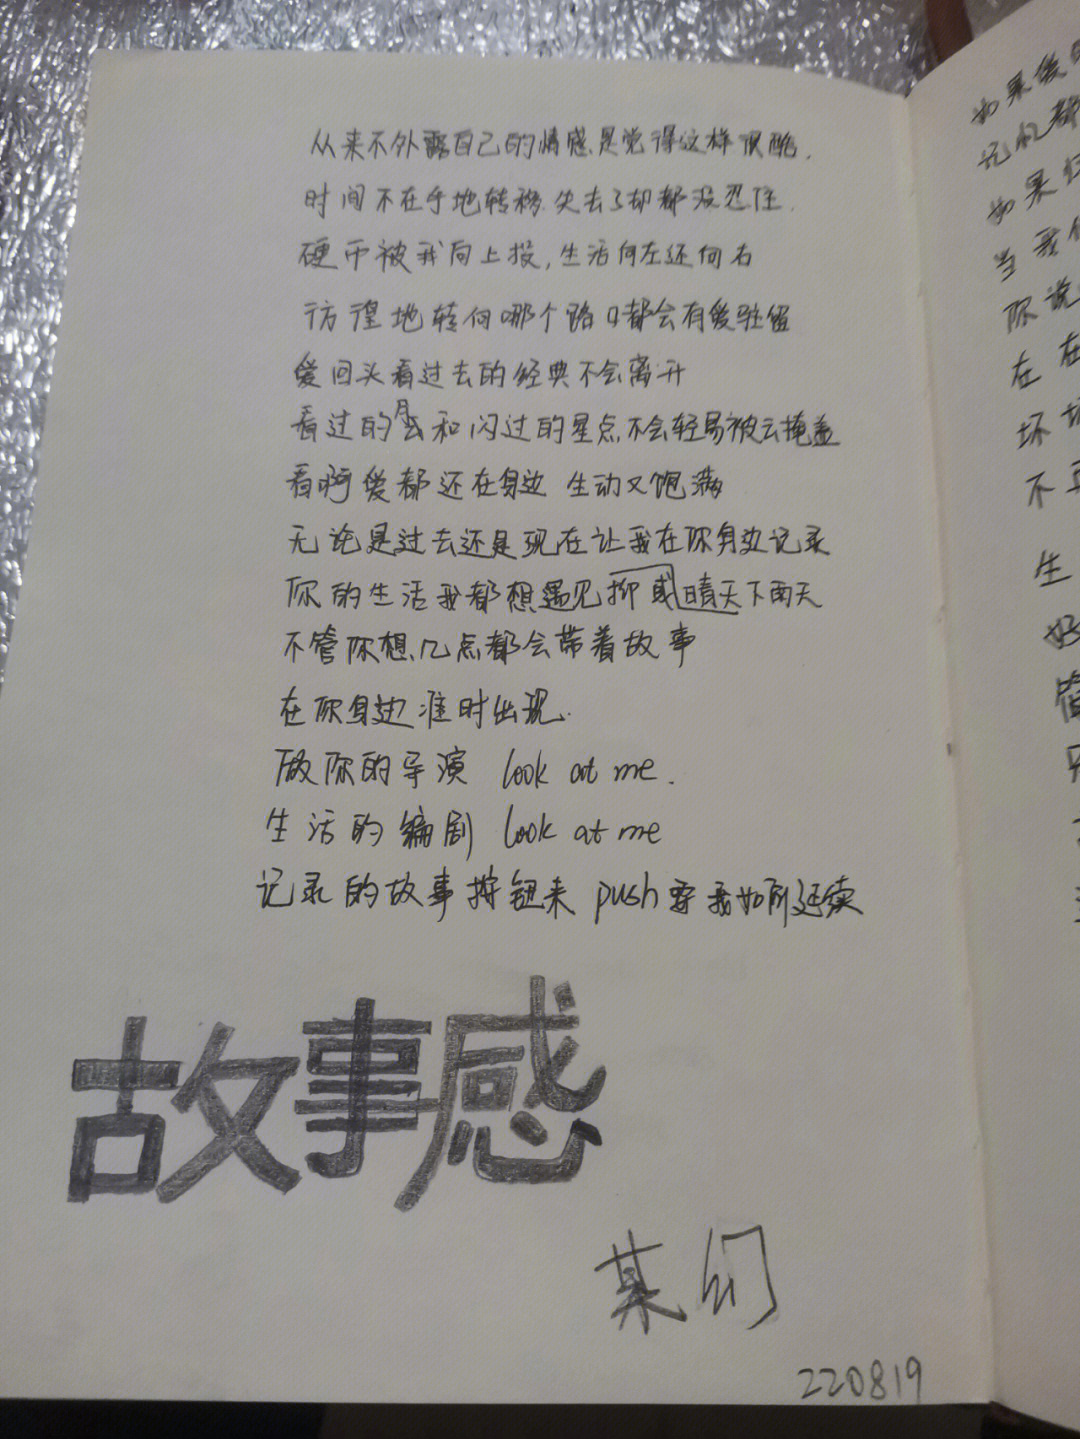 从来不外露自己的情感是觉得这样很酷.
时间不在乎地转移.失去了却都没忍住.
硬币被我向上投,生活向左还向右
彷徨地转向哪个路口都会有爱驻留
爱回头看过去的经典不会离开
看过的月和闪过的星点不会轻易被云掩盖
看啊爱都还在身边 生动又饱满
无论是过去还是现在让我在你身边记录
你的生活我都想遇见抑或晴天下雨天
不管你想几点都会带着故事
在你身边准时出现.
做你的导演 look at me.
生活的编剧 look at me
记录的故事按钮来 push 要我如所延续
故事感
某们
220819
如果爱
记忆都
如果
当我们
你说
在在
坏
不再
生
好